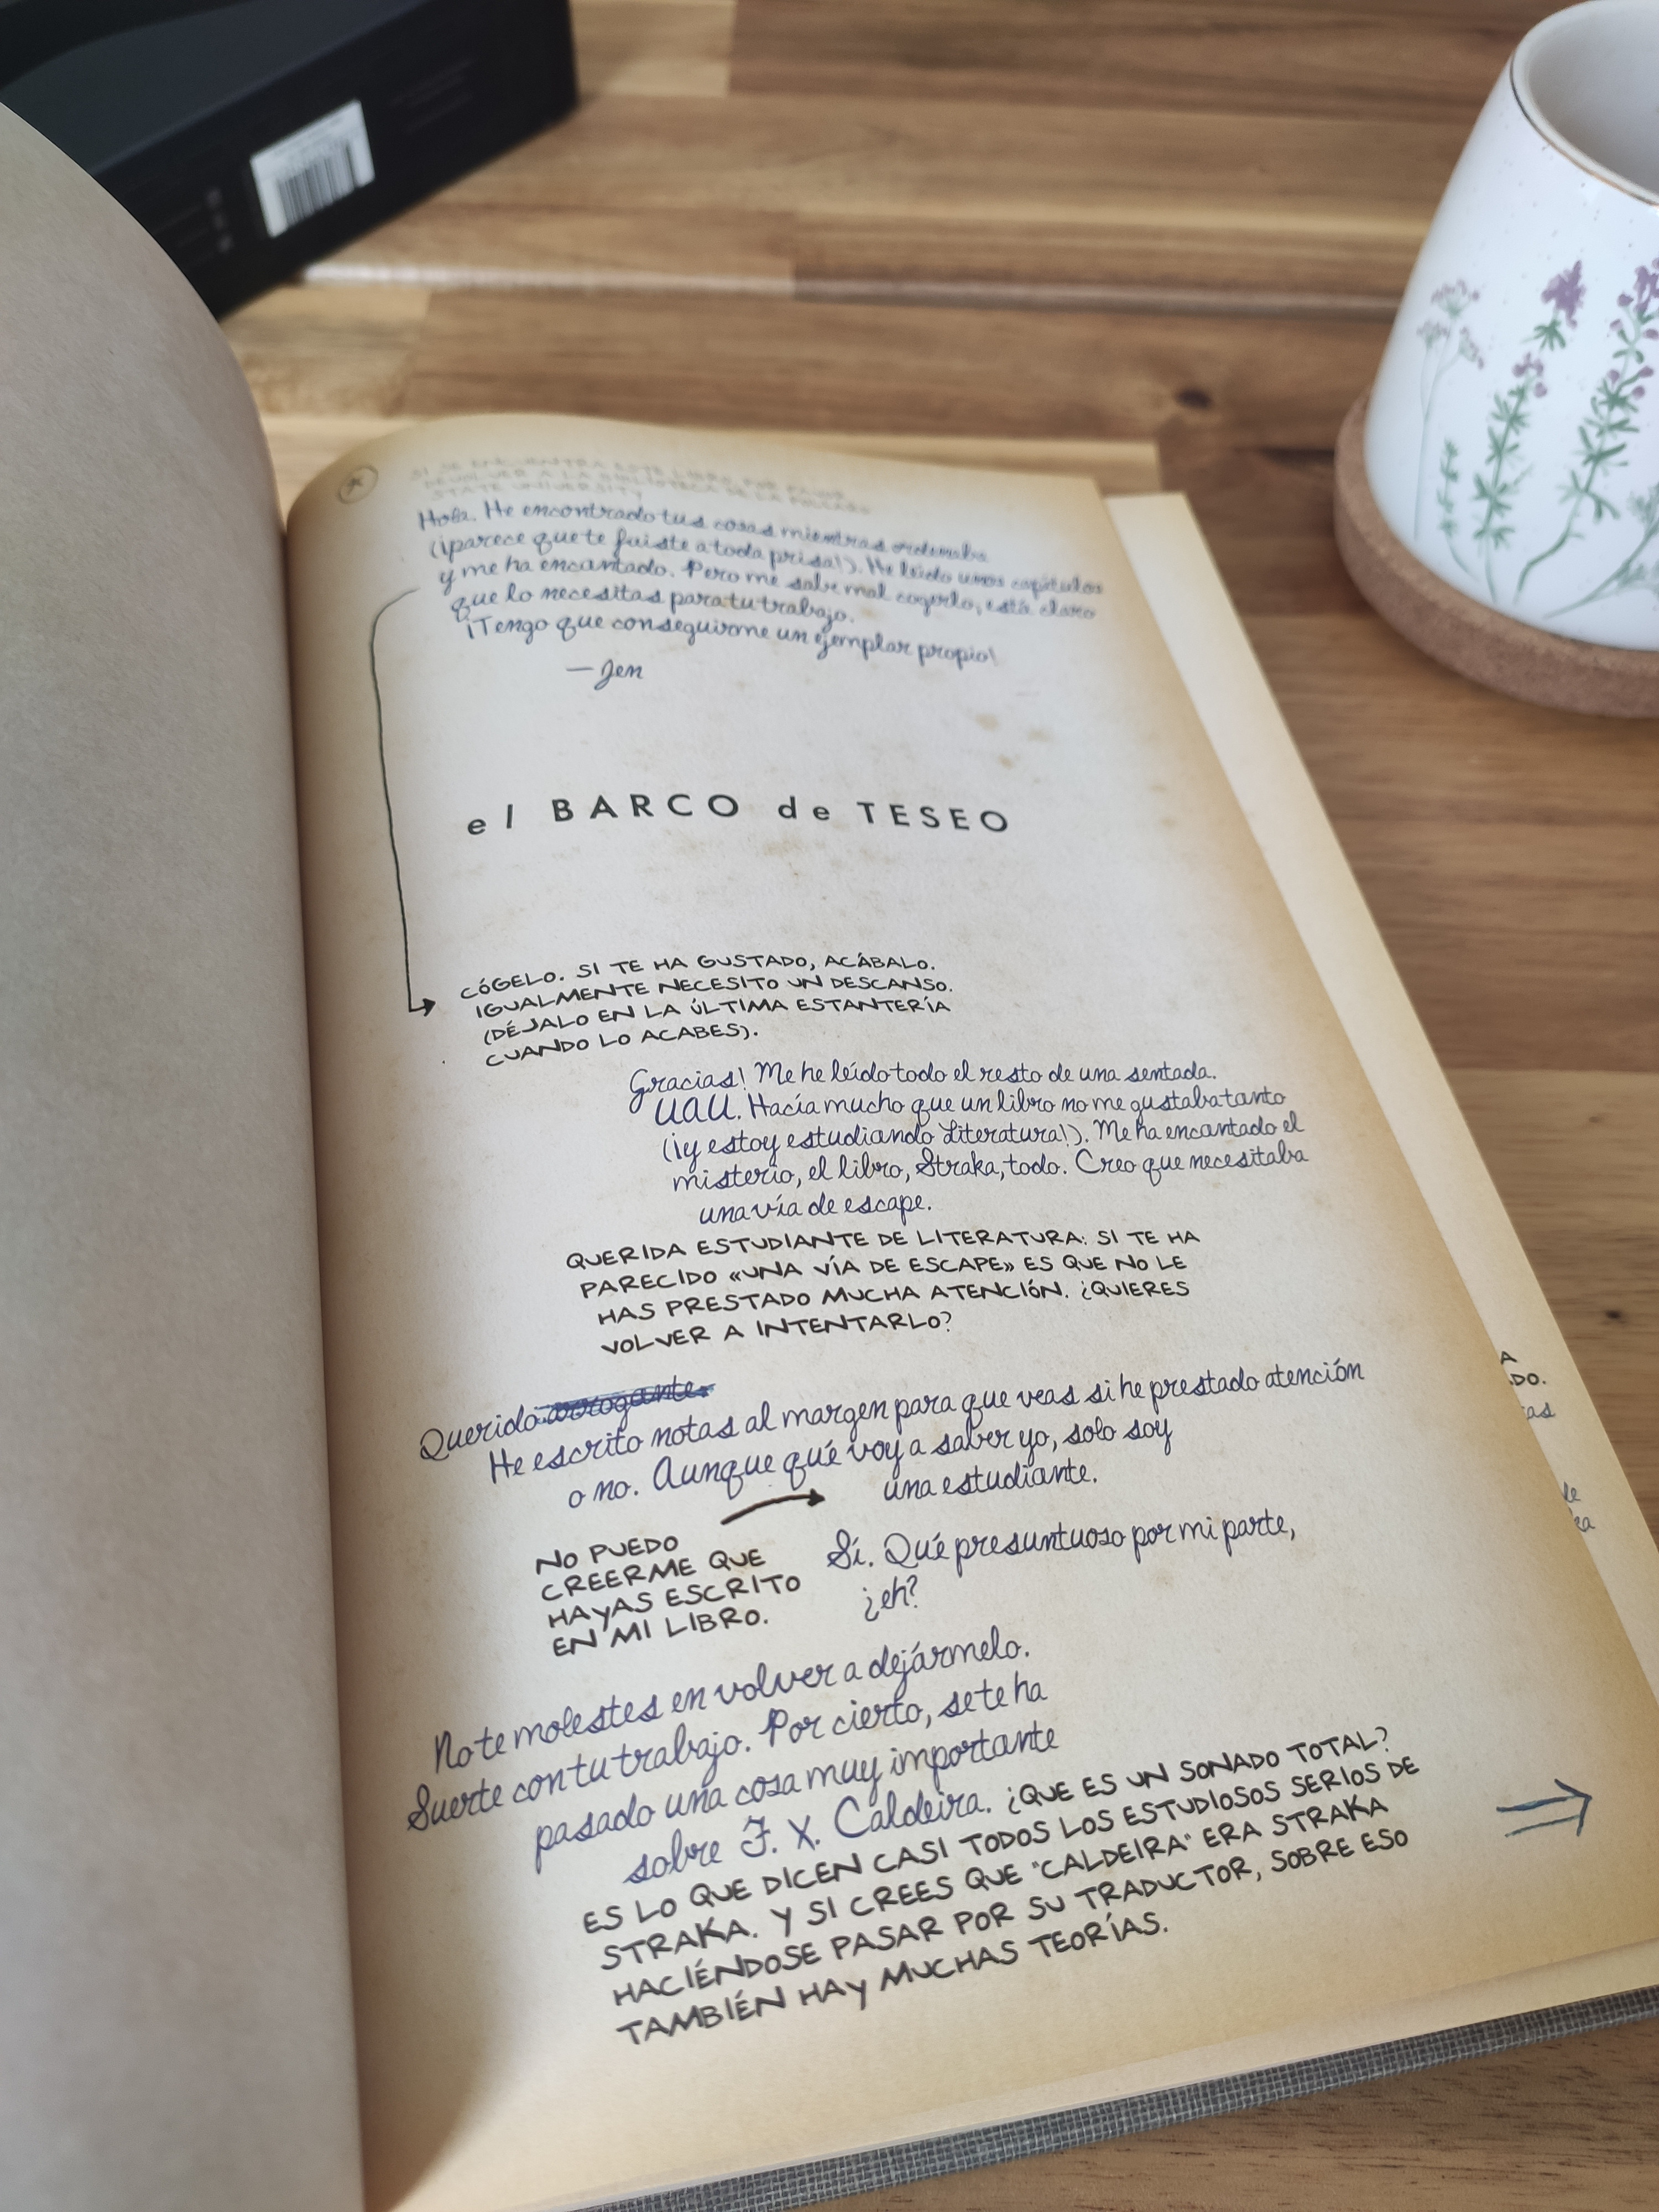 SI SE ENCUENTRA ESTE LIBRO, POR FAVOR
DEVOLVER A LA BIBLIOTECA DE LA POLLARD
STATE UNIVERSITY
Hola. He encontrado tus cosas mientras ordenaba
(¡parece que te fuiste a toda prisa!). He leído unos capítulos
y me ha encantado. Pero me sabe mal cogerlo, está claro
que lo necesitas para tu trabajo.
¡Tengo que conseguirme un ejemplar propio!
—Jen
el BARCO de TESEO
CÓGELO. SI TE HA GUSTADO, ACÁBALO.
IGUALMENTE NECESITO UN DESCANSO.
(DÉJALO EN LA ÚLTIMA ESTANTERÍA
CUANDO LO ACABES).
Gracias! Me he leído todo el resto de una sentada.
UAU. Hacía mucho que un libro no me gustaba tanto
(¡y estoy estudiando Literatura!). Me ha encantado el
misterio, el libro, Straka, todo. Creo que necesitaba
una vía de escape.
QUERIDA ESTUDIANTE DE LITERATURA: SI TE HA
PARECIDO «UNA VÍA DE ESCAPE» ES QUE NO LE
HAS PRESTADO MUCHA ATENCIÓN. ¿QUIERES
VOLVER A INTENTARLO?
Querido arrogante:
He escrito notas al margen para que veas si he prestado atención
o no. Aunque qué voy a saber yo, solo soy
una estudiante.
NO PUEDO
CREERME QUE
HAYAS ESCRITO
EN MI LIBRO.
Sí. Qué presuntuoso por mi parte,
¿eh?
No te molestes en volver a dejármelo.
Suerte con tu trabajo. Por cierto, se te ha
pasado una cosa muy importante
sobre F. X. Caldeira. ¿QUE ES UN SONADO TOTAL?
ES LO QUE DICEN CASI TODOS LOS ESTUDIOSOS SERIOS DE
STRAKA. Y SI CREES QUE "CALDEIRA" ERA STRAKA
HACIÉNDOSE PASAR POR SU TRADUCTOR, SOBRE ESO
TAMBIÉN HAY MUCHAS TEORÍAS.